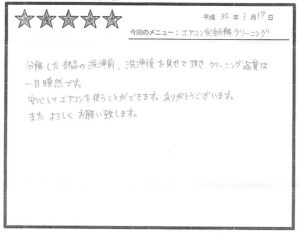 平成 30 年 3 月 17 日
今回のメニュー：エアコン完全分解クリーニング
分解した部品の洗浄前、洗浄後を見せて頂き クリーニング品質は
一目瞭然です。
安心してエアコンを使うことができます。ありがとうございます。
また よろしく お願い致します。